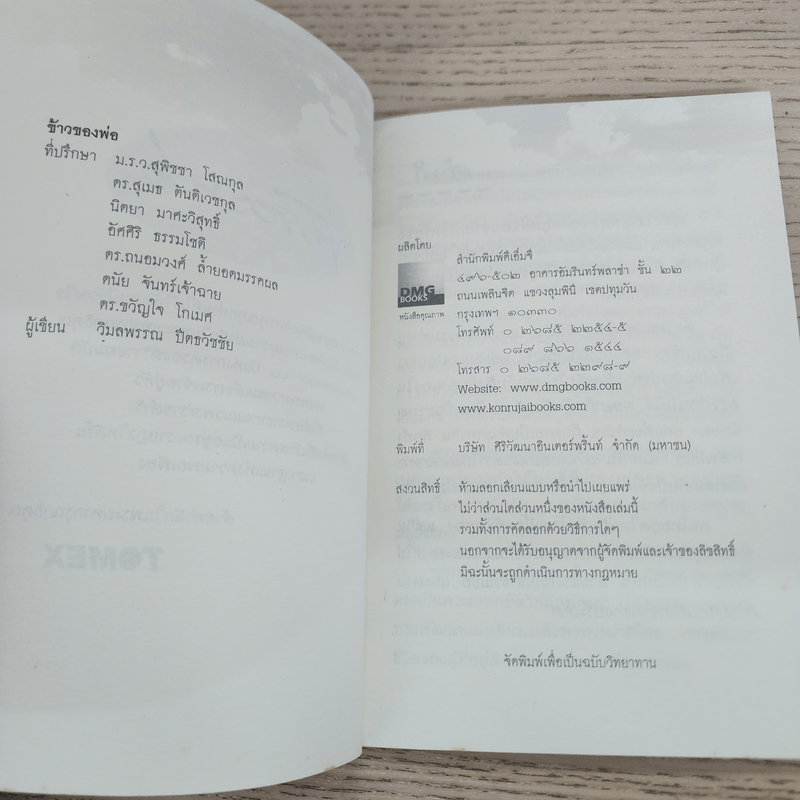 ข้าวของพ่อ
ที่ปรึกษา ม.ร.ว.สุพิชชา โสณกุล
ดร.สุเมธ ตันติเวชกุล
นิตยา มาศะวิสุทธิ์
อัศศิริ ธรรมโชติ
ดร.ถนอมวงศ์ ล้ำยอดมรรคผล
ดนัย จันทร์เจ้าฉาย
ดร.ขวัญใจ โกเมศ
ผู้เขียน วิมลพรรณ ปีตธวัชชัย
ผลิตโดย
สำนักพิมพ์ดีเอ็มจี
๔๙๖-๕๐๒ อาคารอัมรินทร์พลาซ่า ชั้น ๒๒
ถนนเพลินจิต แขวงลุมพินี เขตปทุมวัน
กรุงเทพฯ ๑๐๓๓๐
โทรศัพท์ ๐ ๒๖๘๕ ๒๒๕๔-๕
๐๘๙ ๘๖๖ ๑๕๔๔
โทรสาร ๐ ๒๖๘๕ ๒๒๙๘-๙
Website: www.dmgbooks.com
www.konrujaibooks.com
DMG
BOOKS
หนังสือคุณภาพ
พิมพ์ที่ บริษัท ศิริวัฒนาอินเตอร์พริ้นท์ จำกัด (มหาชน)
สงวนสิทธิ์ ห้ามลอกเลียนแบบหรือนำไปเผยแพร่
ไม่ว่าส่วนใดส่วนหนึ่งของหนังสือเล่มนี้
รวมทั้งการคัดลอกด้วยวิธีการใดๆ
นอกจากจะได้รับอนุญาตจากผู้จัดพิมพ์และเจ้าของลิขสิทธิ์
มิฉะนั้นจะถูกดำเนินการทางกฎหมาย
จัดพิมพ์เพื่อเป็นฉบับวิทยาทาน
TOMEX